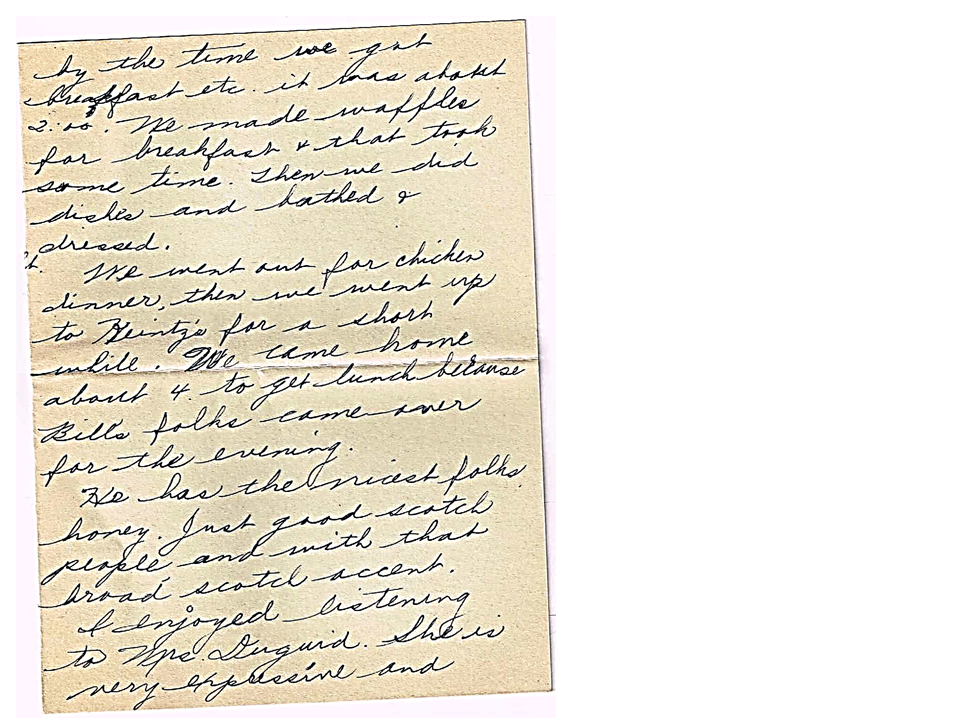 by the time we got
breakfast etc. it was about
2:00. We made waffles
for breakfast & that took
some time. Then we did
dishes and bathed &
dressed.
We went out for chicken
dinner, then we went up
to Heintz's for a short
while. We came home
about 4 to get lunch because
Bill's folks came over
for the evening.
He has the nicest folks,
honey. Just good scotch
people and with that
broad scotch accent.
I enjoyed listening
to Mrs. Duguid. She is
very expressive and